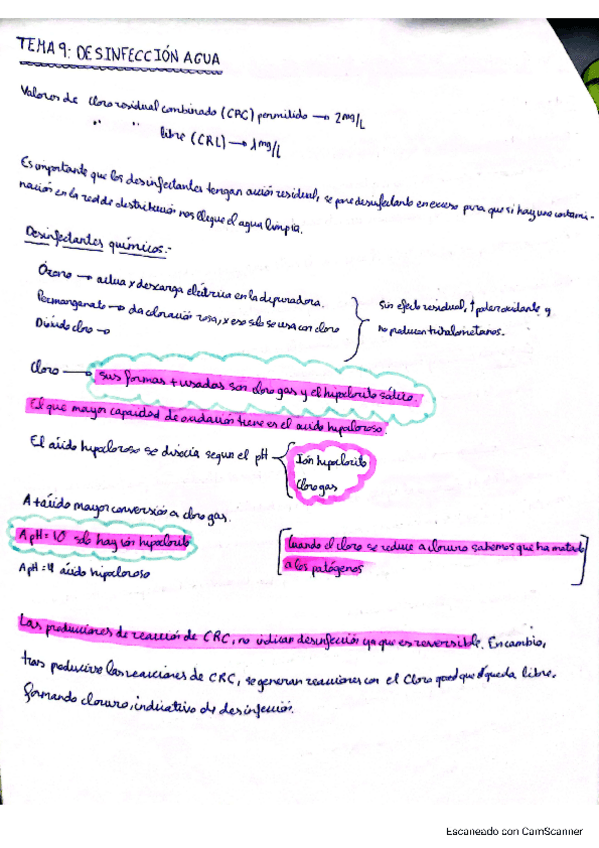 TEMA 9: DESINFECCIÓN AGUA
Valores de Cloro residual combinado (CRC) permitido → 2 mg/L
" " libre (CRL) → 1 mg/L
Es importante que los desinfectantes tengan acción residual, se pone desinfectante en exceso para que si hay una contami-
nación en la red de distribución nos llegue el agua limpia.
Desinfectantes químicos.-
Ozono → actua x descarga eléctrica en la depuradora.
Permanganato → da coloración rosa, x eso solo se usa con cloro
Dióxido cloro →
sin efecto residual, ↑ poder oxidante y
no producen trihalometanos.
Cloro → sus formas + usadas son cloro gas y el hipoclorito sódico.
El que mayor capacidad de oxidación tiene es el ácido hipocloroso.
El ácido hipocloroso se disocia segun el pH
Ión hipoclorito
Cloro gas
A + ácido mayor conversión a cloro gas.
A pH = 10 solo hay ión hipoclorito
A pH = 4 ácido hipocloroso
Cuando el cloro se reduce a cloruro sabemos que ha matado
a los patógenos
Las producciones de reacción de CRC, no indican desinfección ya que es reversible. En cambio,
tras producirse las reacciones de CRC, se generan reacciones con el Cloro que queda libre,
formando cloruro, indicativo de desinfección.
Escaneado con CamScanner